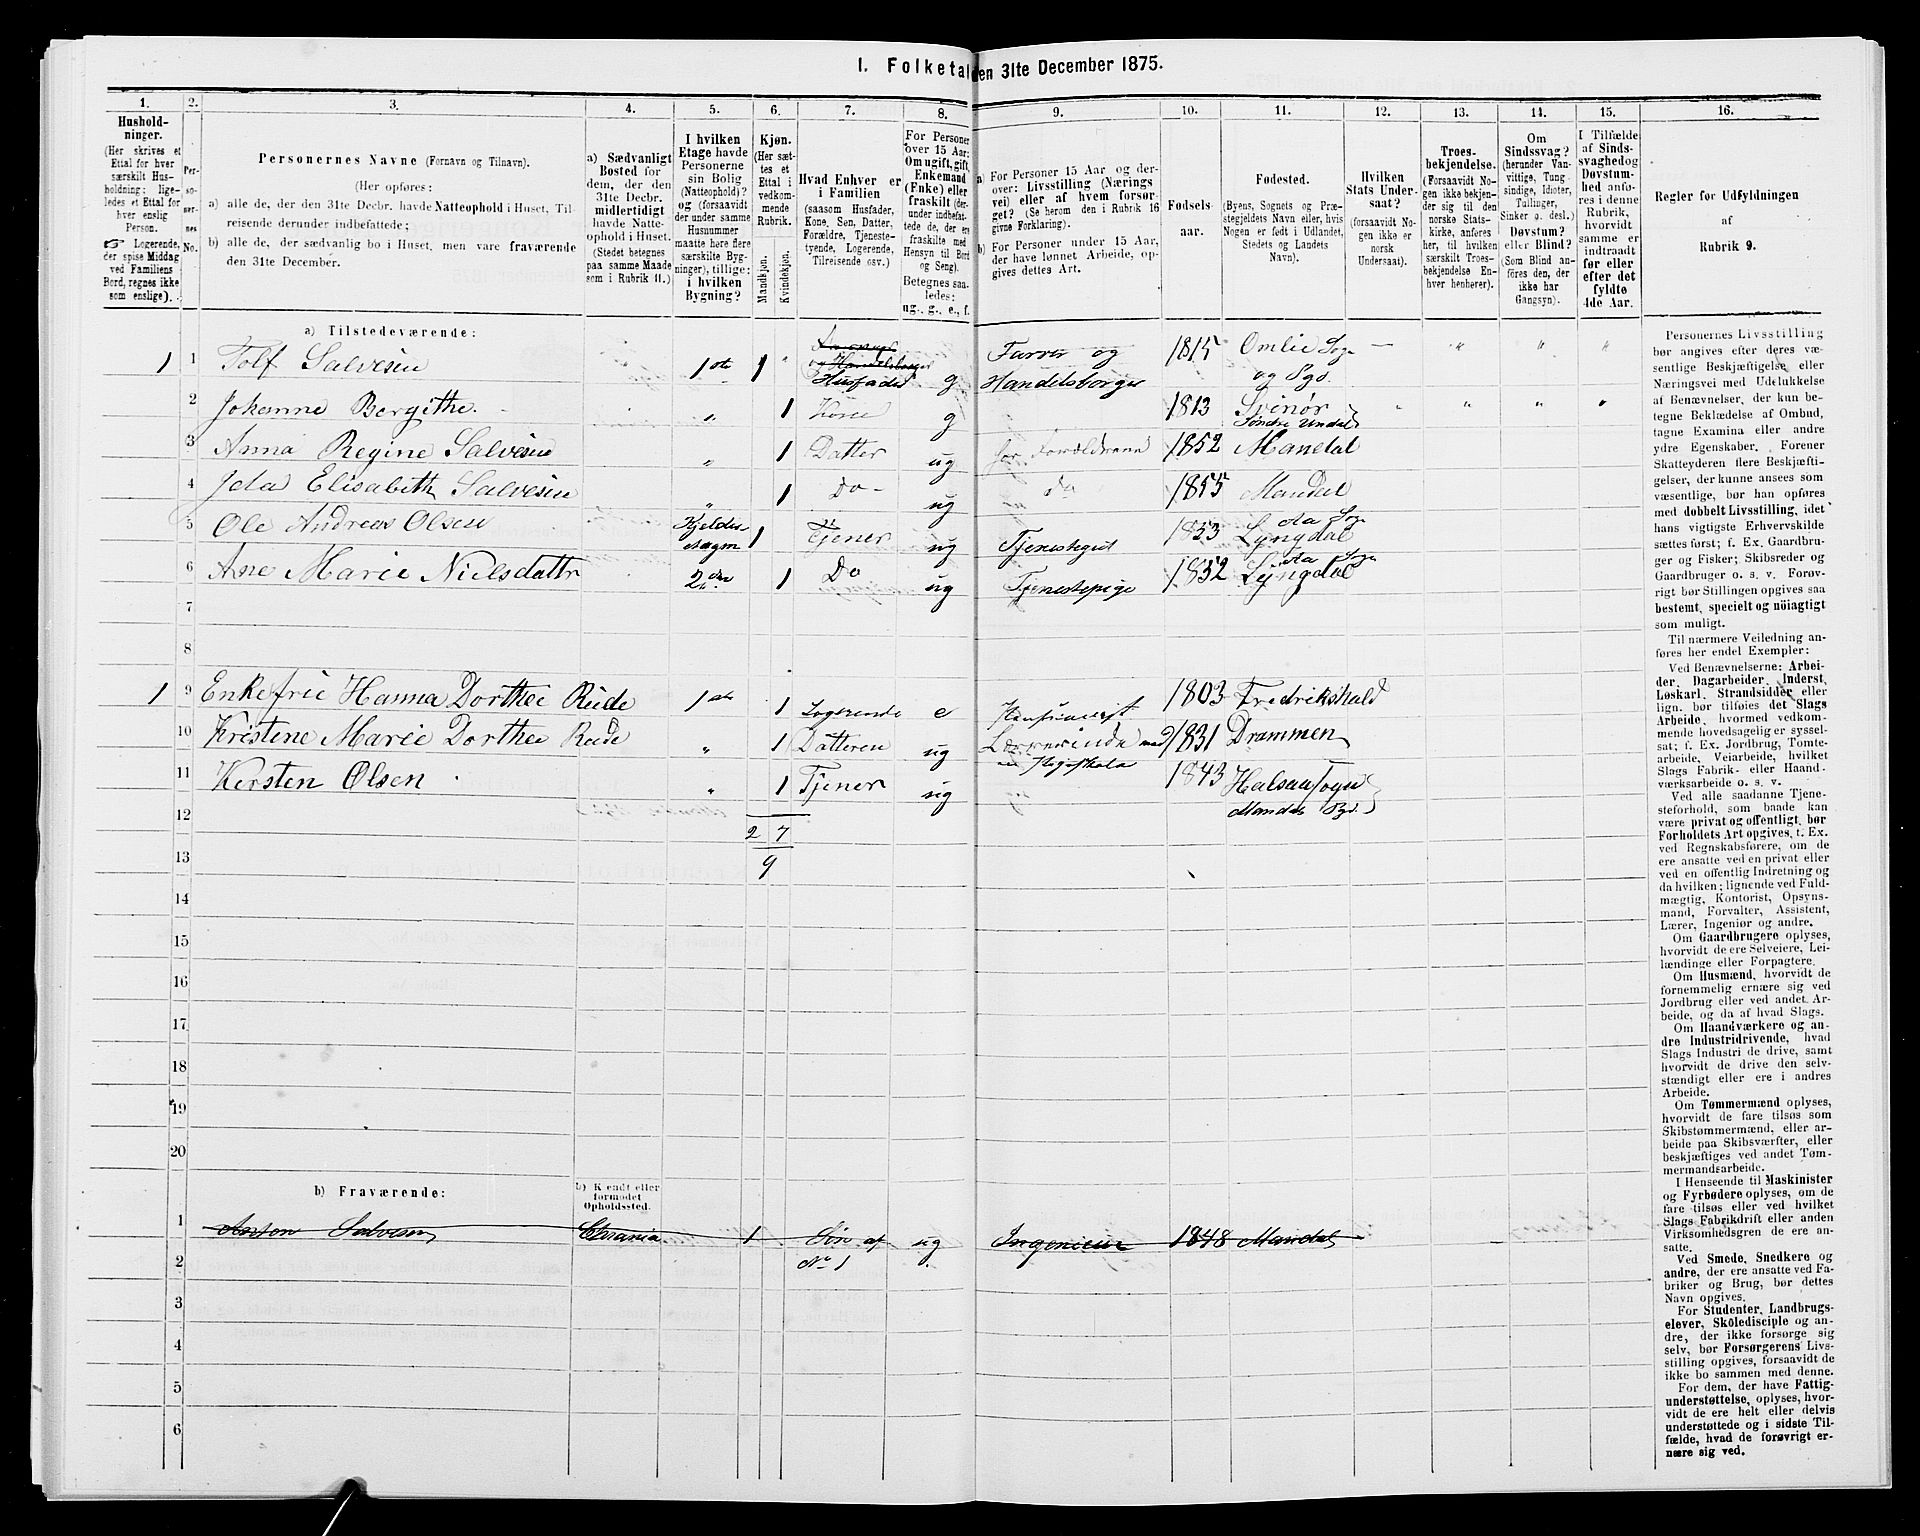 I. Folketal den 31te December 1875.
1. 2. 3. 4. 5. 6. 7. 8. 9. 10. 11. 12. 13. 14. 15. 16.
Hushold-
ninger.
(Her skrives et
Ettal for hver
særskilt Hus-
holdning; lige-
ledes et Ettal for
hver enslig
Person.
☞ Logerende,
der spise Middag
ved Familiens
Bord, regnes ikke
som enslige).
Per-
so-
ner-
nes
No.
Personernes Navne (Fornavn og Tilnavn).
(Her opføres:
a) alle de, der den 31te Decbr. havde Natteophold i Huset, Til-
reisende derunder indbefattede;
b) alle de, der sædvanlig bo i Huset, men vare fraværende
den 31te December.
a) Sædvanligt
Bosted for
dem, der den
31te Decbr.
midlertidigt
havde Natte-
ophold i Huset.
(Stedet betegnes
paa samme Maade
som i Rubrik 11.)
I hvilken
Etage havde
Personerne
sin Bolig
(Natteophold)?
og (forsaavidt
der under samme
Husnummer
maatte høre flere
særskilte Byg-
ninger), tillige:
i hvilken
Bygning?
Kjøn.
(Her sæt-
tes et
Ettal i
vedkom-
mende
Rubrik.
Mandkjøn.
Kvindekjøn.
Hvad Enhver er
i Familien
(saasom Husfader,
Kone, Søn, Datter,
Forældre, Tjeneste-
tyende, Logerende,
Tilreisende osv.)
For Personer
over 15 Aar:
Om ugift, gift,
Enkemand
(Enke) eller
fraskilt (der-
under indbefat-
tede de, der ere
fraskilte med
Hensyn til Bord
og Seng).
Betegnes saa-
ledes:
ug., g., e., f.
a) For Personer 15 Aar og der-
over: Livsstilling (Nærings
vei) eller af hvem forsør-
get? (Se herom den i Rubrik 16
givne Forklaring).
b) For Personer under 15 Aar,
der have lønnet Arbeide, op-
gives dettes Art.
Fødsels-
aar.
Fødested.
(Byens, Sognets og Præ-
stegjeldets Navn eller, hvis
Nogen er født i Udlandet,
Stedets og Landets
Navn).
Hvilken
Stats Under-
saat?
(forsaavidt No-
gen ikke er
norsk
Undersaat).
Troes-
bekjendelse.
(Forsaavidt No-
gen ikke bekjen-
der sig til den
norske Stats-
kirke, anføres
her, til hvilken
særskilt Troes-
bekjendelse En-
hver henhører).
Om
Sindssvag?
(herunder Van-
vittige, Tung-
sindige, Idioter,
Tullinger,
Sinker o. desl.)
Døvstum?
eller Blind?
(Som Blind an-
føres den, der
ikke har
Gangsyn).
I Tilfælde
af Sinds-
svaghed og
Døvstum-
hed anfø-
res i denne
Rubrik,
hvorvidt
samme er
indtraadt
før eller
efter det
fyldte
4de Aar.
Regler for Udfyldningen
af
Rubrik 9.
a) Tilstedeværende:
1 1 Tolf Salvesen 1ste 1 " og Handelsborger Husfader g Farver og Handelsborger 1815 Omlie Sogn og Pgd. — " " "
2 Johanne Bergithe. " 1 Kone g 1813 Svinør Søndre Undal " " " "
3 Anna Regine Salvesen " 1 Datter ug for Forældrene 1852 Mandal
4 Ida Elisabeth Salvesen " 1 Do - ug do 1855 Mandal
5 Ole Andreas Olsen 1 Tjener ug Tjenestegut 1853 Lyngdal do Sogn
6 Ane Marie Nielsdattr 2den 1 Do ug Tjenestepige 1852 Lyngdal do Sogn
7
8
1 9 Enkefrue Hanna Dorthee Rude 1ste 1 Logerende e 1803 Fredrikshald
10 Kristene Marie Dorthee Rude " 1 Datteren ug Lærerinde ved en Pigeskole 1831 Drammen
11 Kersten Olsen " 1 Tjener ug 1843 Halsaa Sogn Mandals Pgd.
12 2 7
13 9
14
15
16
17
18
19
20
b) Fraværende:
b) Kjendt eller
formodet
Opholdssted.
1 Anton Salvesen Chrania 1 Søn af No 1 ug Ingenieur 1848 Mandal
2
3
4
5
6
Personernes Livsstilling
bør angives efter deres væ-
sentlige Beskjæftigelse eller
Næringsvei med Udelukkelse
af Benævnelser, der kun be-
tegne Beklædelse af Ombud,
tagne Examina eller andre
ydre Egenskaber. Forener
Skatteyderen flere Beskjæfti-
gelser, der kunne ansees som
væsentlige, bør han opføres
med dobbelt Livsstilling, idet
hans vigtigste Erhvervskilde
sættes først; f. Ex. Gaardbru-
ger og Fisker; Skibsreder og
Gaardbruger o. s. v. Forøv-
rigt bør Stillingen opgives saa
bestemt, specielt og nöiagtigt
som muligt.
Til nærmere Veiledning an-
føres her endel Exempler:
Ved Benævnelserne: Arbei-
der, Dagarbeider, Inderst,
Løskarl, Strandsidder eller
lign. bør tilføies det Slags
Arbeide, hvormed vedkom-
mende hovedsagelig er syssel-
sat; f. Ex. Jordbrug, Tomte-
arbeide, Veiarbeide, hvilket
Slags Fabrik- eller Haand-
værksarbeide o. s. v.
Ved alle saadanne Tjene-
steforhold, som baade kan
være privat og offentligt, bør
Forholdets Art opgives, t. Ex.
ved Regnskabsførere, om de
ere ansatte ved en privat eller
ved en offentlig Indretning og
da hvilken; lignende ved Fuld-
mægtig, Kontorist, Opsyns-
mand, Forvalter, Assistent,
Lærer, Ingeniør og andre.
Om Gaardbrugere oplyses,
hvorvidt de ere Selveiere, Lei-
lændinge eller Forpagtere.
Om Husmænd, hvorvidt de
fornemmelig ernære sig ved
Jordbrug eller ved andet Ar-
beide, og da af hvad Slags.
Om Haandværkere og an-
dre Industridrivende, hvad
Slags Industri de drive, samt
hvorvidt de drive den selv-
stændigt eller ere i andres
Arbeide.
Om Tømmermænd oplyses,
hvorvidt de fare tilsøs som
Skibstømmermænd, eller ar-
beide paa Skibsværfter, eller
beskjæftiges ved andet Tøm-
mermandsarbeide.
I Henseende til Maskinister
og Fyrbødere oplyses, om de
fare tilsøs eller ved hvilket
Slags Fabrikdrift eller anden
Virksomhedsgren de ere an-
satte.
Ved Smede, Snedkere og
andre, der ere ansatte ved Fa-
briker og Brug, bør dettes
Navn opgives.
For Studenter, Landbrugs-
elever, Skoledisciple og an-
dre, der ikke forsørge sig
selv, bør Forsørgerens Livs-
stilling opgives, forsaavidt de
ikke bo sammen med denne.
For dem, der have Fattig-
understøttelse, oplyses, hvor-
vidt de ere helt eller delvis
understøttede og i sidste Til-
fælde, hvad de forøvrigt er-
nære sig ved.